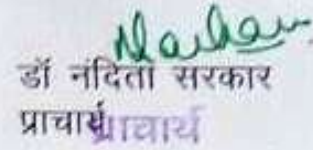 डॉ नंदिता सरकार
प्राचार्य प्राचार्य